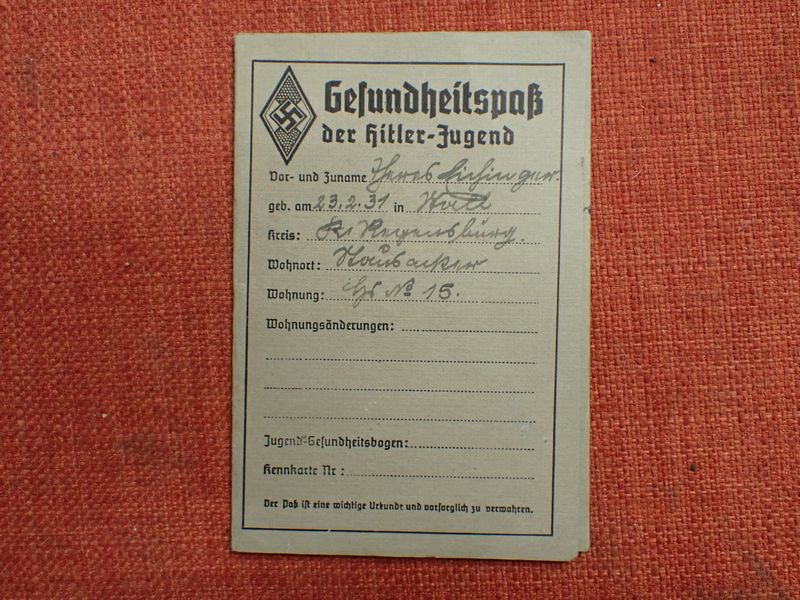 Gesundheitspaß
der Hitler-Jugend
Vor- und Zuname Theres Eichinger.
geb. am 23.2.31 in
Kreis: Regensburg.
Wohnort: Stausacker
Wohnung: Hs No 15.
Wohnungsänderungen:
Jugend-Gesundheitsbogen:
Kennkarte Nr:
Der Paß ist eine wichtige Urkunde und vorsorglich zu verwahren.